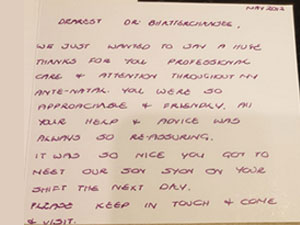 MAY 2013
DEAREST DR BHATTERCHARJEE,
WE JUST WANTED TO SAY A HUGE
THANKS FOR YOU PROFESSIONAL
CARE & ATTENTION THROUGHOUT MY
ANTE-NATAL. YOU WERE SO
APPROACHABLE & FRIENDLY. All
YOUR HELP & ADVICE WAS
ALWAYS SO RE-ASSURING.
IT WAS SO NICE YOU GOT TO
MEET OUR SON SYON ON YOUR
SHIFT THE NEXT DAY.
PLEASE KEEP IN TOUCH & COME
& VISIT.